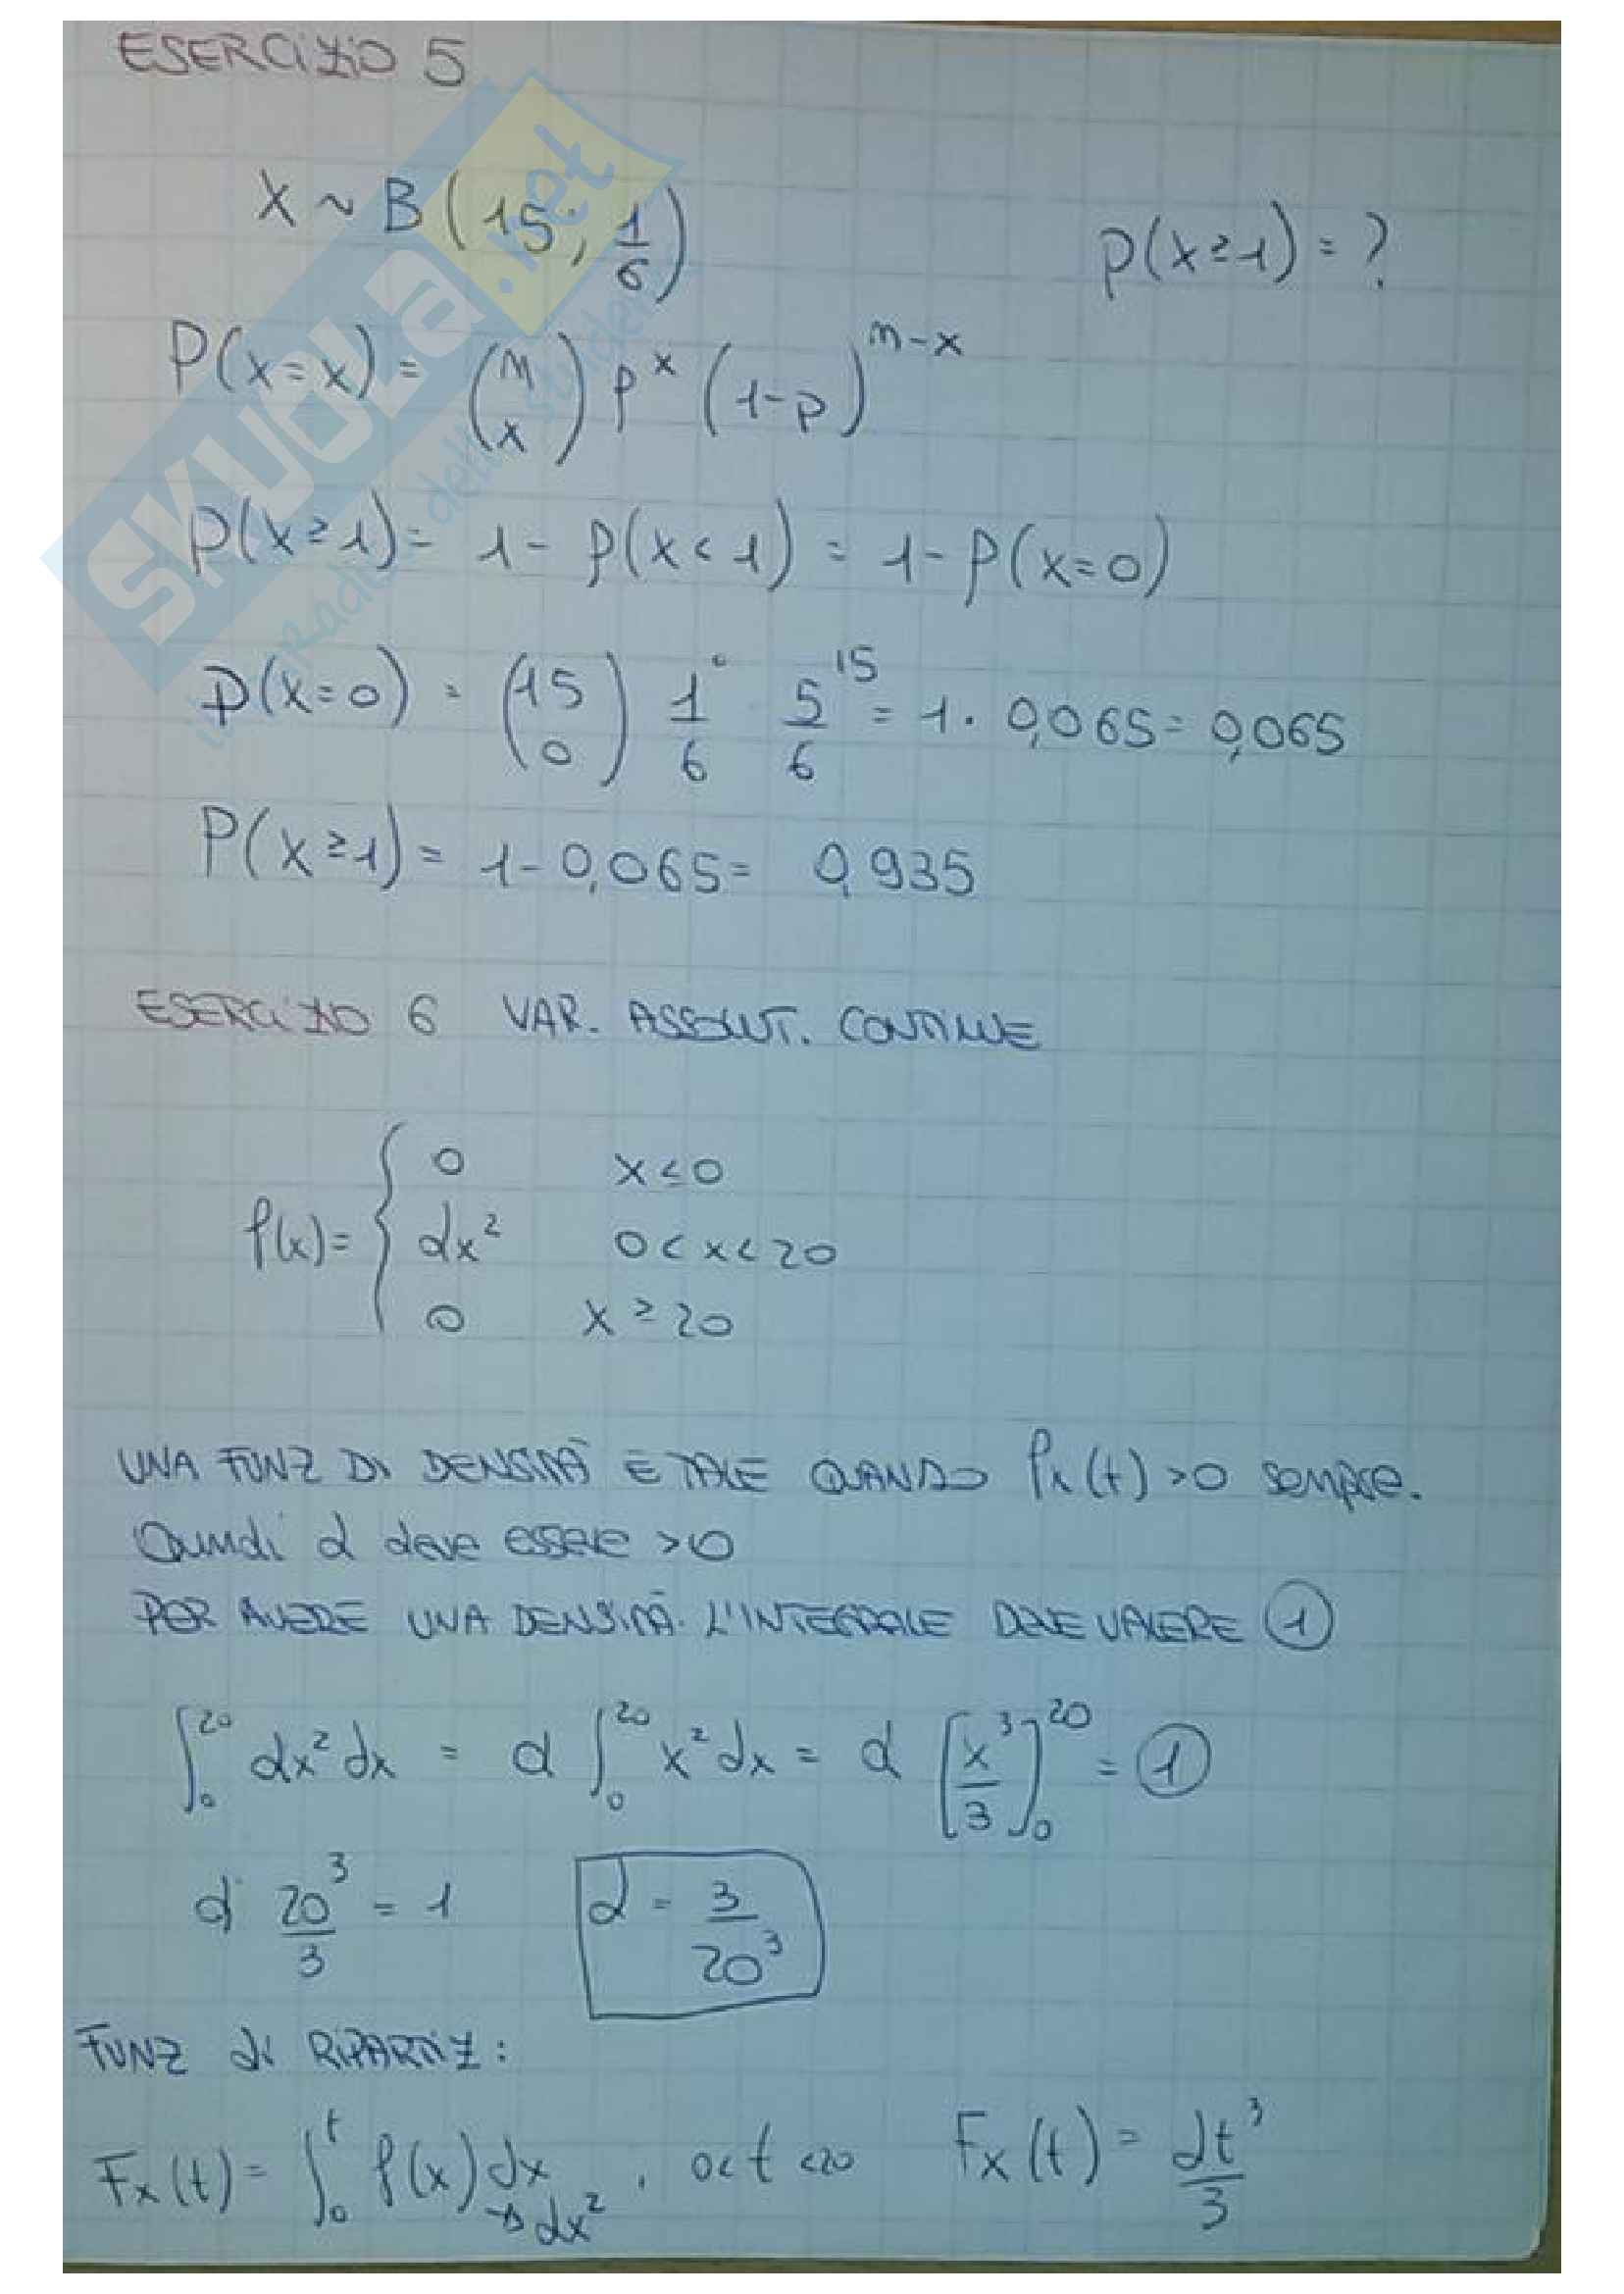 ESERCIZIO 5
X ~ B(15; 1/6) P(x≥1) = ?
P(x=x) = (n x) p^x (1-p)^(n-x)
P(x≥1) = 1 - P(x<1) = 1 - P(x=0)
P(x=0) = (15 0) 1/6^0 5/6^15 = 1 · 0,065 = 0,065
P(x≥1) = 1 - 0,065 = 0,935
ESERCIZIO 6 VAR. ASSOLUT. CONTINUE
f(x) = { 0 x≤0
αx² 0<x<20
0 x≥20
UNA FUNZ DI DENSITÀ È TALE QUANDO fx(t) >0 sempre.
Quindi α deve essere >0
PER AVERE UNA DENSITÀ L'INTEGRALE DEVE VALERE 1
∫_0^20 αx² dx = α ∫_0^20 x² dx = α [x³/3]_0^20 = 1
α 20³/3 = 1 α = 3/20³
FUNZ di RIPARTIZ:
Fx(t) = ∫_0^t f(x) dx , 0<t<20 Fx(t) = αt³/3
→ αx²
SKUOLA.net